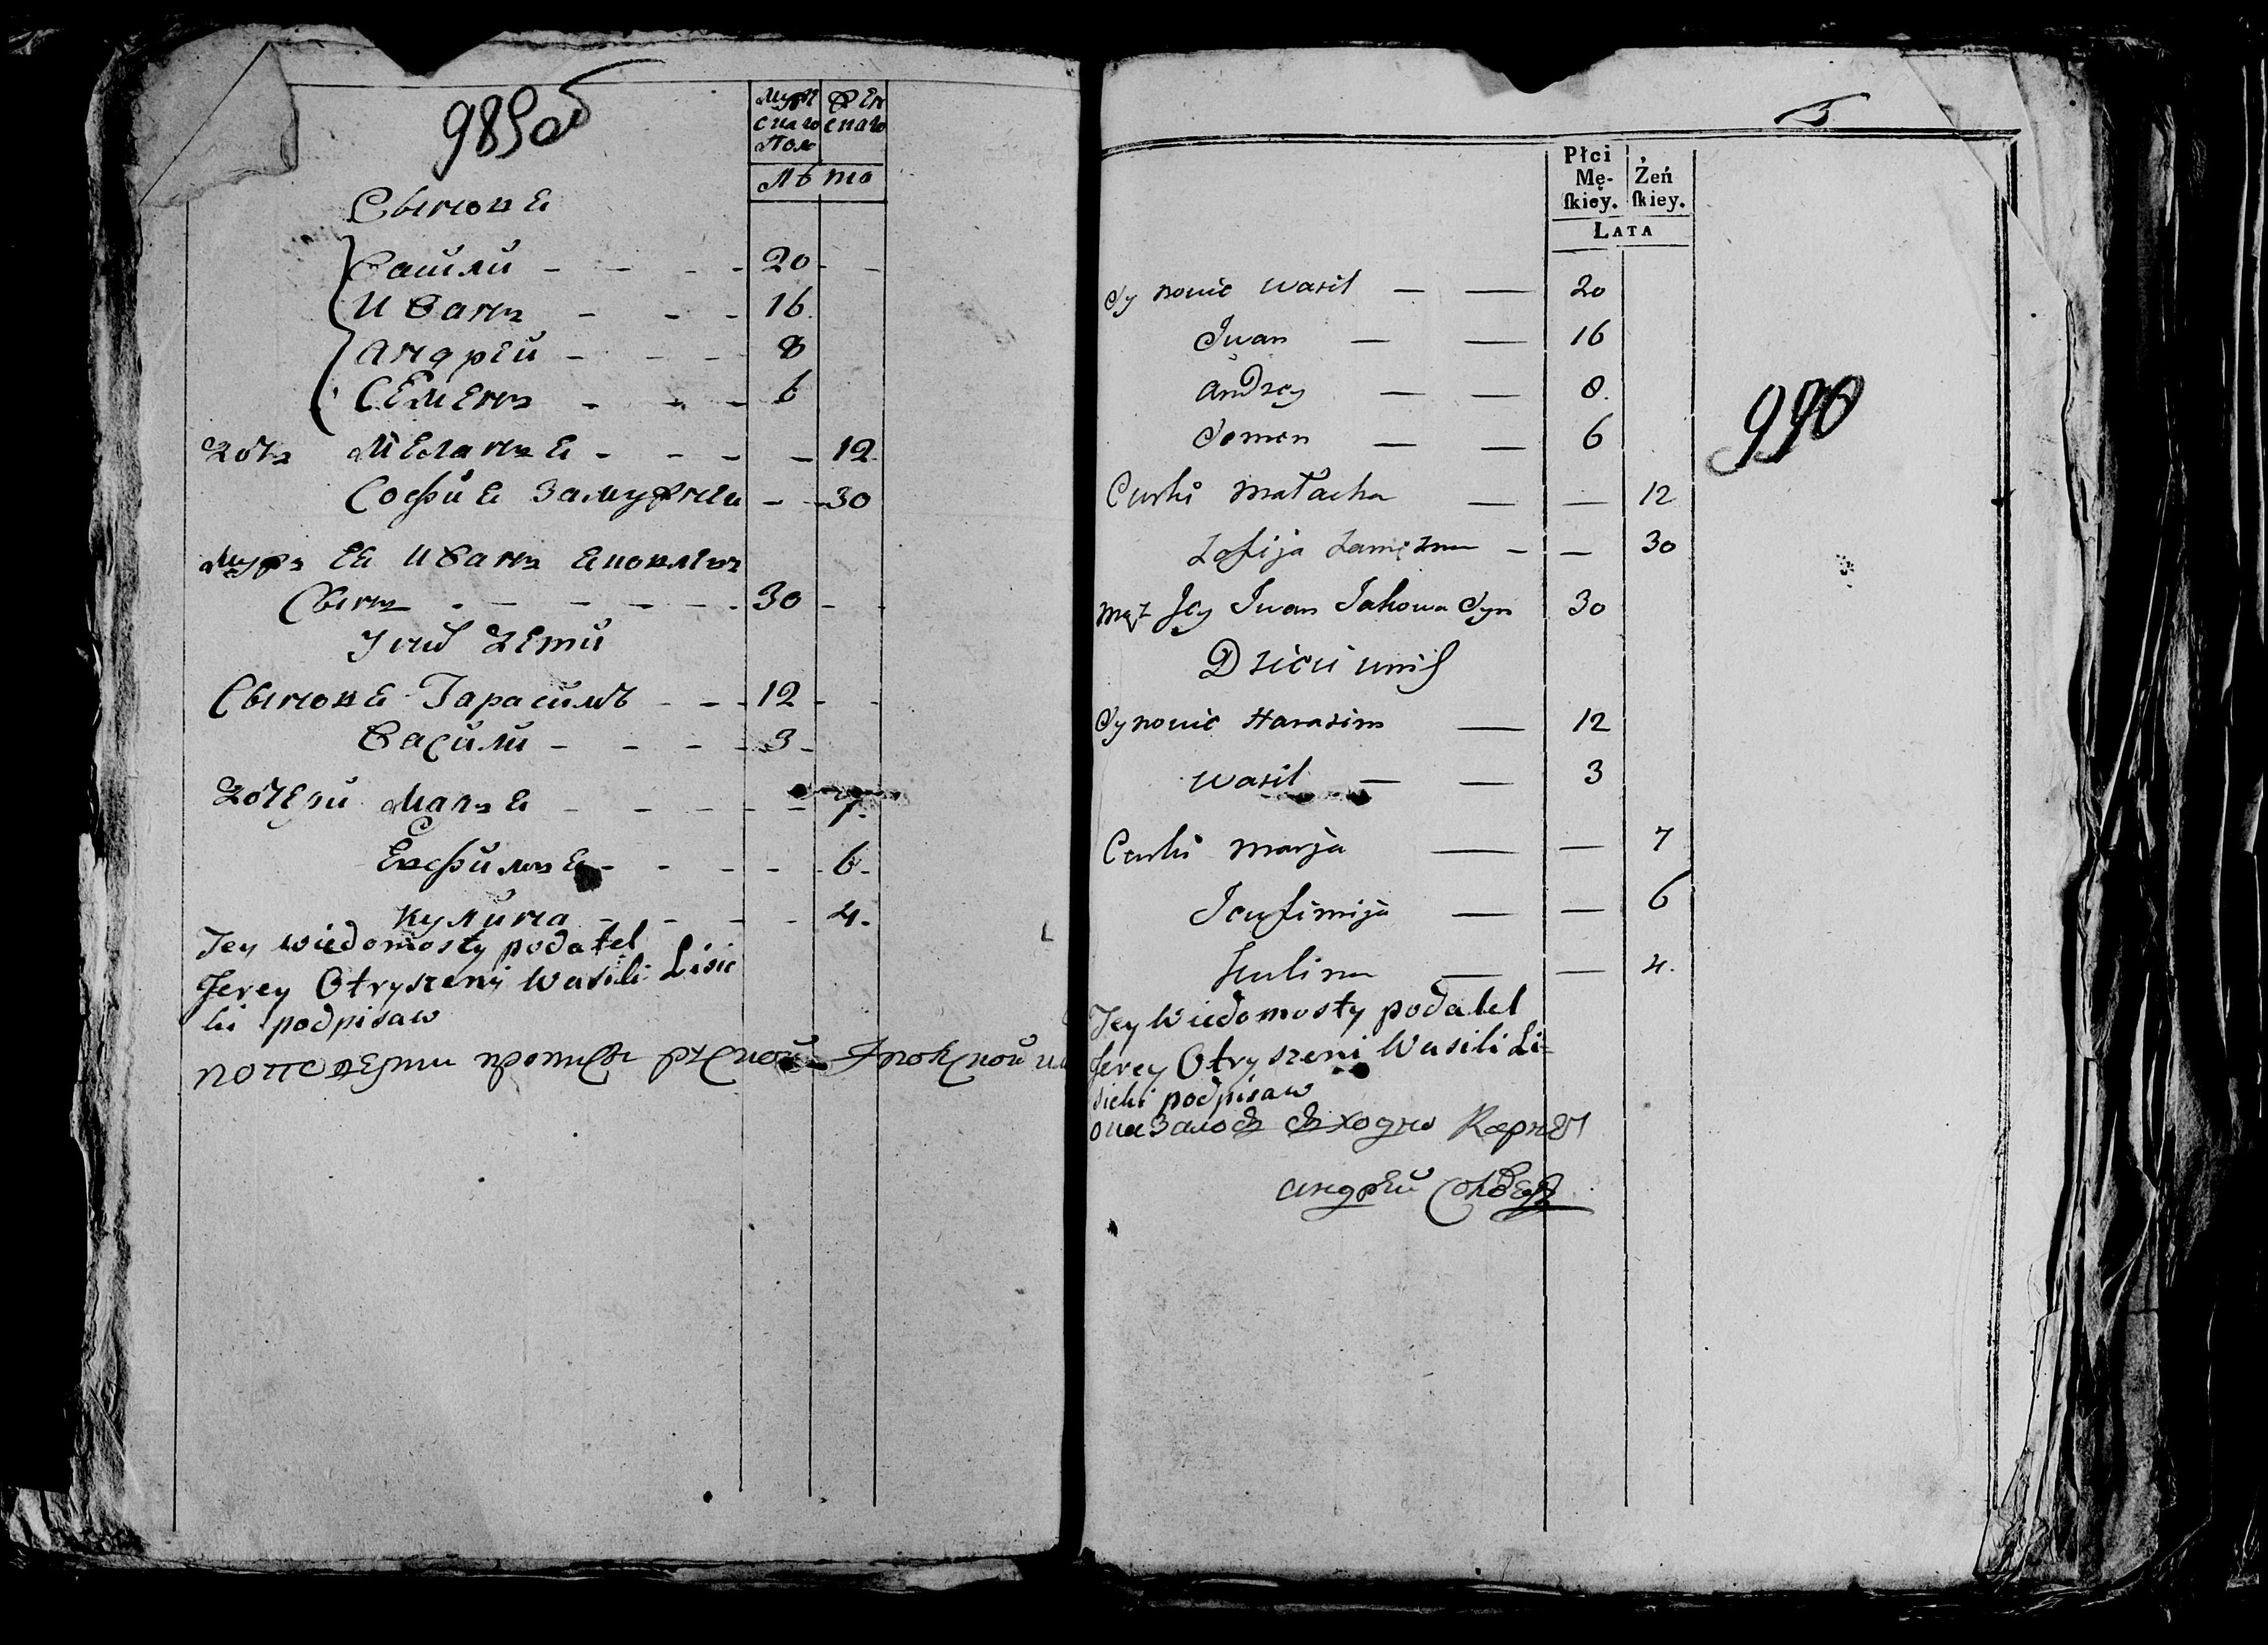 989об
Муже
скаго
Полу
Жен
скаго
Лѣта
Сыновья
Васили 20
Иванъ 16
Андрей 8
Семенъ 6
Меланья 12
София замужняя 30
Мужъ ея Иванъ Яковлевъ
Сынъ 30
У нихъ дети
Сыновья Гарасимъ 12
Васили 3
Дочери Марья 7
Евфимья 6
Кулина 4
Jey wiedomosty podatel
Jerey Otryszeni Wasili Lisic
ki podpisaw
5
990
Płci
Mę-
ſkiey.
Żeń
ſkiey.
Lata
Synowie Wasil 20
Jwan 16
Andrey 8
Semen 6
Curki Małacha 12
Zofija Zamężna 30
Mąż Jey Jwan Jakowa Syn 30
Dzieci unich
Synowie Harasim 12
Wasil 3
Curki Marja 7
Jeufimija 6
Kulina 4
Jey Wiedomosty podatel
Jerey Otryszeni Wasili Li=
sicki podpisaw
Андрей